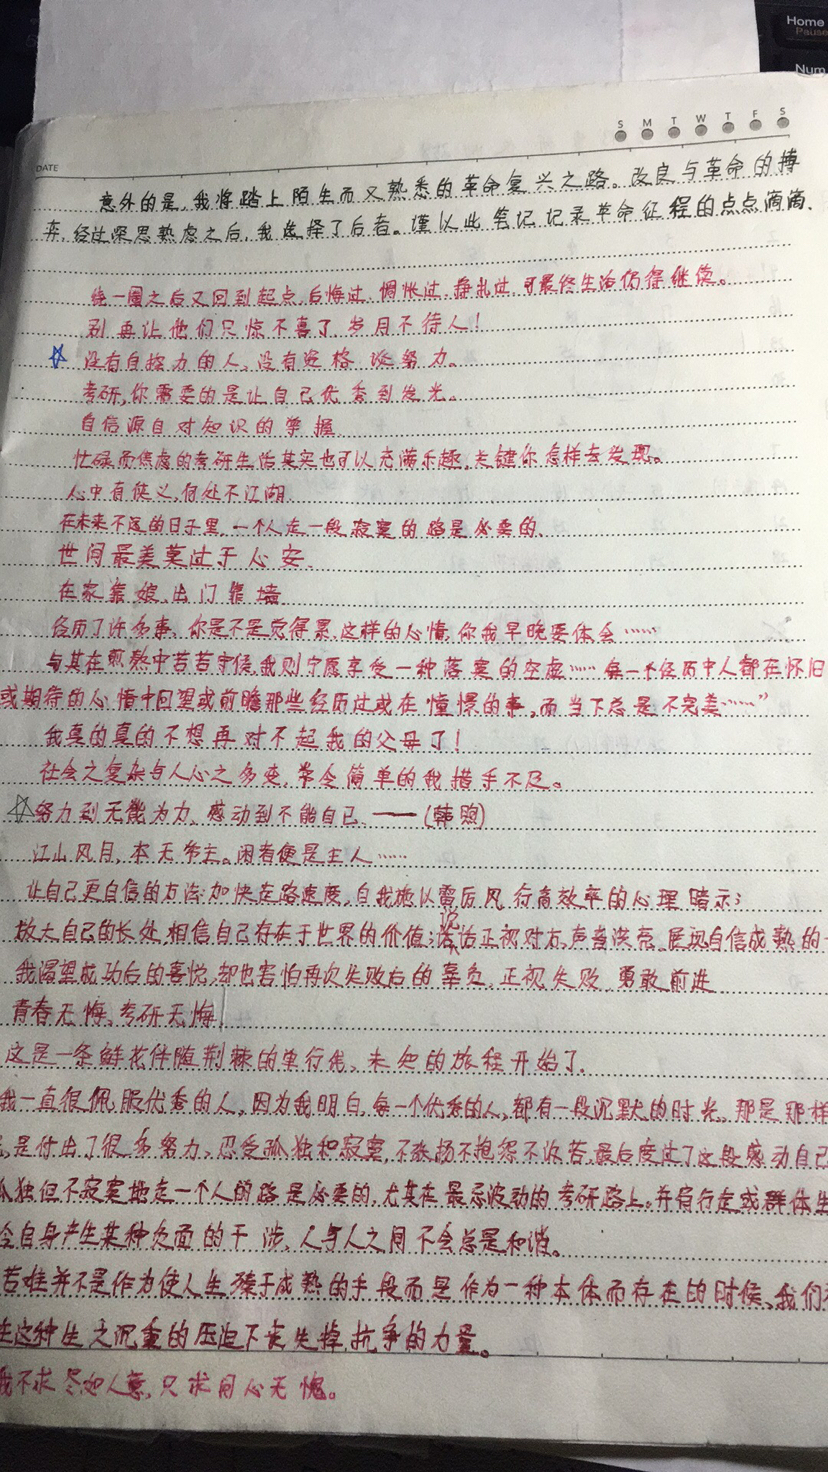 Home
Pause
Num
S M T W T F S
DATE
意外的是,我将踏上陌生而又熟悉的革命复兴之路。改良与革命的搏
弈,经过深思熟虑之后,我选择了后者。谨以此笔记记录革命征程的点点滴滴.
绕一圈之后又回到起点,后悔过、惆怅过,挣扎过,可最终生活仍得继续。
别再让他们只惊不喜了,岁月不待人!
☆没有自控力的人、没有资格谈努力。
考研,你需要的是让自己优秀到发光。
自信源自对知识的掌握
忙碌而焦虑的考研生活其实也可以充满乐趣,关键你怎样去发现。
心中有侠义,何处不江湖
在未来不远的日子里,一个人走一段寂寞的路是必要的.
世间最美莫过于心安.
在家靠娘,出门靠墙
经历了许多事、你是不是觉得累,这样的心情,你我早晚要体会……
与其在煎熬中苦苦守候,我则宁愿享受一种落寞的空虚……每一个经历中人都在怀旧
或期待的心情中回望或前瞻那些经历过或在憧憬的事,而当下总是不完美……”
我真的真的不想再对不起我的父母了!
社会之复杂与人心之多变,常令简单的我措手不及。
☆努力到无能为力,感动到不能自已 ——(韩煦)
江山风月,本无常主。闲者便是主人……
让自己更自信的方法:加快走路速度,自我施以雷厉风行高效率的心理暗示;
放大自己的长处,相信自己存在于世界的价值;说话正视对方,声音洪亮、展现自信成熟的一
我渴望成功后的喜悦,却也害怕再次失败后的辜负,正视失败,勇敢前进
青春无悔,考研无悔
这是一条鲜花伴随荆棘的单行线、未知的旅程开始了.
我一直很佩服优秀的人,因为我明白,每一个优秀的人,都有一段沉默的时光。那是那样
是付出了很多努力,忍受孤独和寂寞,不张扬不抱怨不诉苦,最后度过了这段感动自己
孤独但不寂寞地走一个人的路是必要的,尤其在最忌波动的考研路上,并肩行走或群体生
会自身产生某种负面的干涉、人与人之间不会总是和谐。
苦难并不是作为使人生臻于成熟的手段而是作为一种本体而存在的时候、我们
在这种生之沉重的压迫下丧失掉抗争的力量。
我不求尽如人意,只求问心无愧。